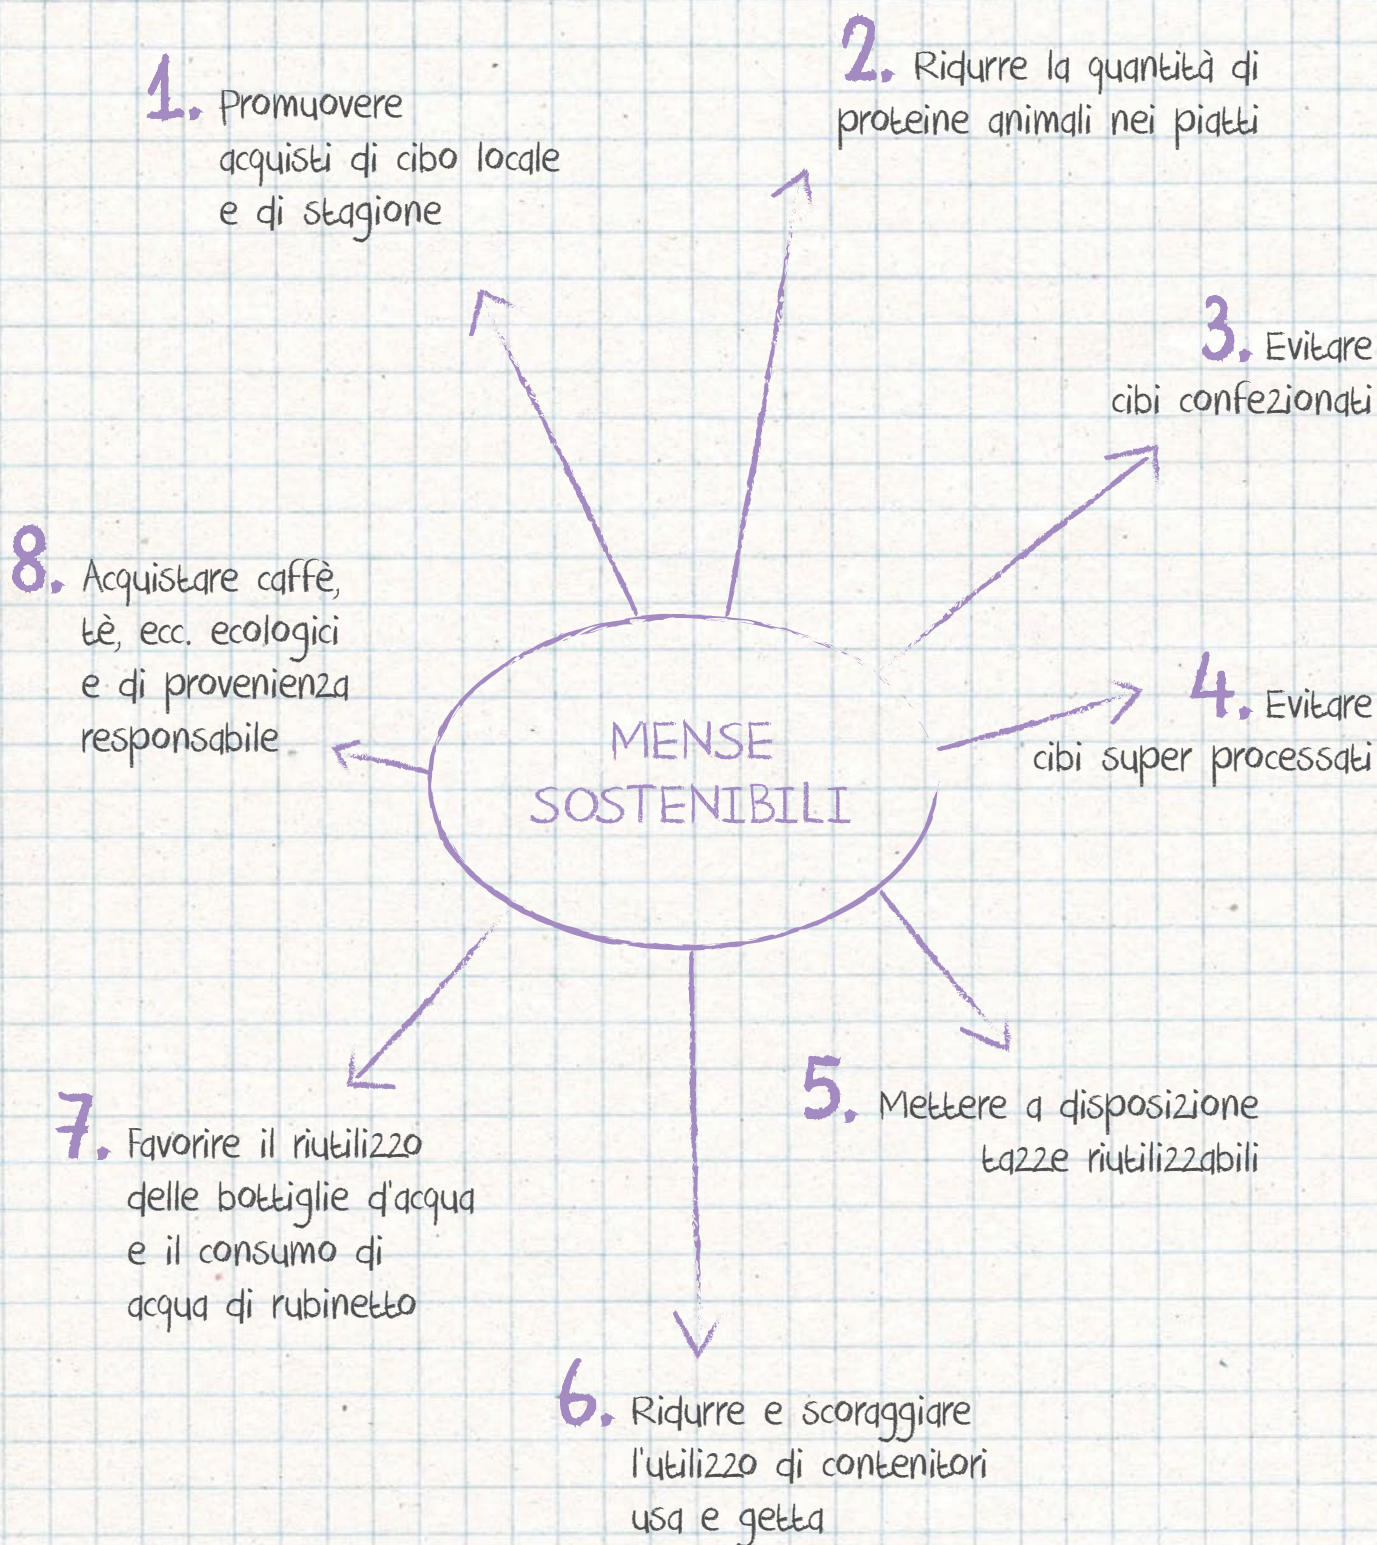 1. Promuovere
acquisti di cibo locale
e di stagione
2. Ridurre la quantità di
proteine animali nei piatti
3. Evitare
cibi confezionati
4. Evitare
cibi super processati
5. Mettere a disposizione
tazze riutilizzabili
6. Ridurre e scoraggiare
l'utilizzo di contenitori
usa e getta
7. Favorire il riutilizzo
delle bottiglie d'acqua
e il consumo di
acqua di rubinetto
8. Acquistare caffè,
tè, ecc. ecologici
e di provenienza
responsabile
MENSE
SOSTENIBILI